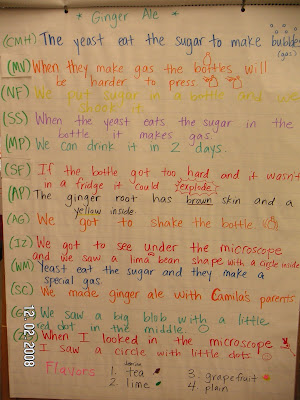 * Ginger Ale *
(CMH) The yeast eat the sugar to make bubbles
(gas)
(MV) When they make gas the bottles will
be harder to press.
(NF) We put sugar in a bottle and we
shook it.
(SS) When the yeast eats the sugar in the
bottle it makes gas.
(MP) We can drink it in 2 days.
(SF) If the bottle got too hard and it wasn't
in a fridge it could explode!
(AP) The ginger root has brown skin and a
yellow inside.
(AG) We got to shake the bottle.
(IZ) We got to see under the microscope
and we saw a lima bean shape with a circle inside
(WM) Yeast eat the sugar and they make a
special gas.
(SC) We made ginger ale with Camila's parents.
We saw a big blob with a little
red dot in the middle.
When I looked in the microscope
I saw a circle with little dots
Flavors 1. tea 3. grapefruit
2. lime 4. plain
12/02/2008